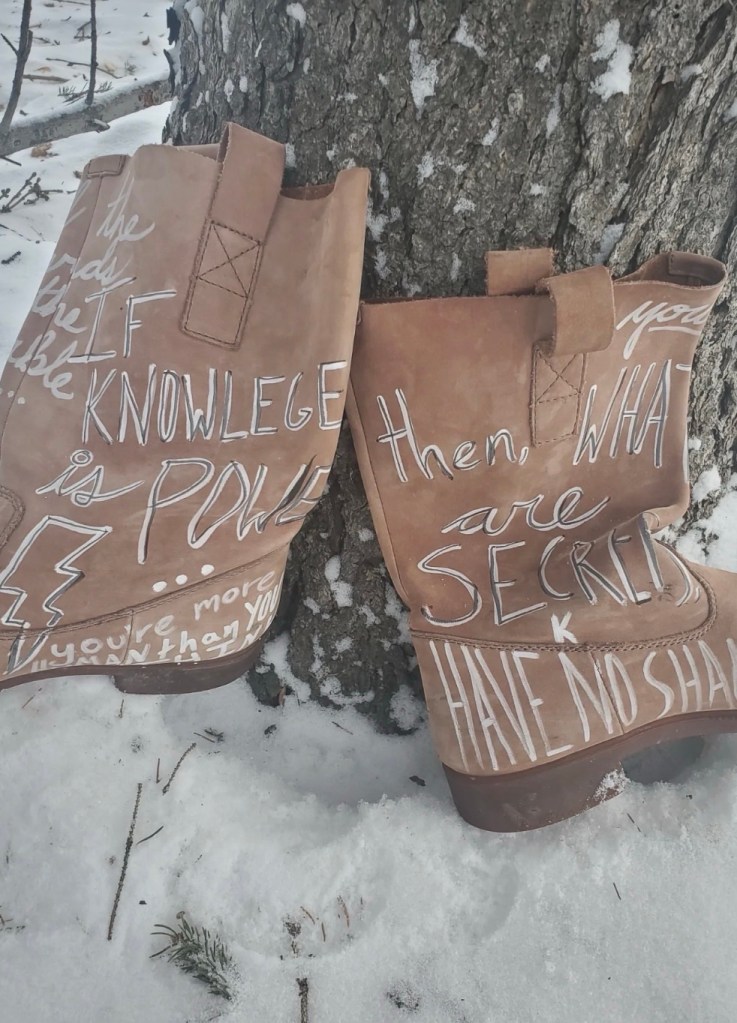 the
the
IF
KNOWLEGE
is POWE
...
you're more
than YOU
you
then, WHAT
are
SECRE
K
HAVE NO SHA